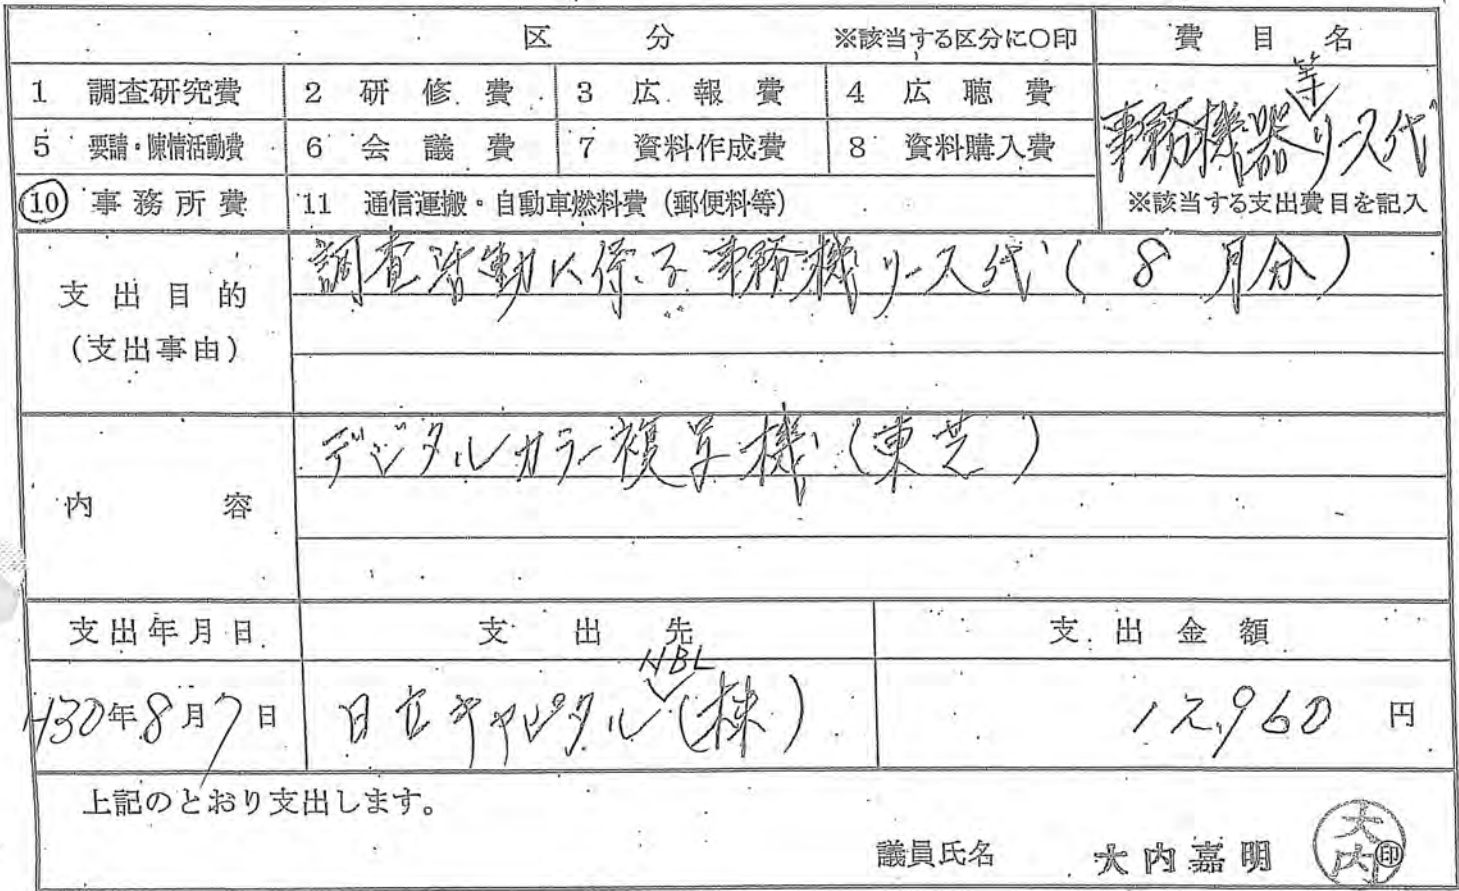 区 分 ※該当する区分に○印 費目名
1 調査研究費 2 研修費 3 広報費 4 広聴費
等
事務機器リース代
5 要請・陳情活動費 6 会議費 7 資料作成費 8 資料購入費
10 事務所費 11 通信運搬・自動車燃料費(郵便料等) ※該当する支出費目を記入
支出目的
(支出事由)
調査活動に係る事務機リース代(8月分)
内容
デジタルカラー複写機(東芝)
支出年月日 支出先 支出金額
NBL
H30年8月7日 日立キャピタル(株) 12,960円
上記のとおり支出します。
議員氏名 大内嘉明 大内 印